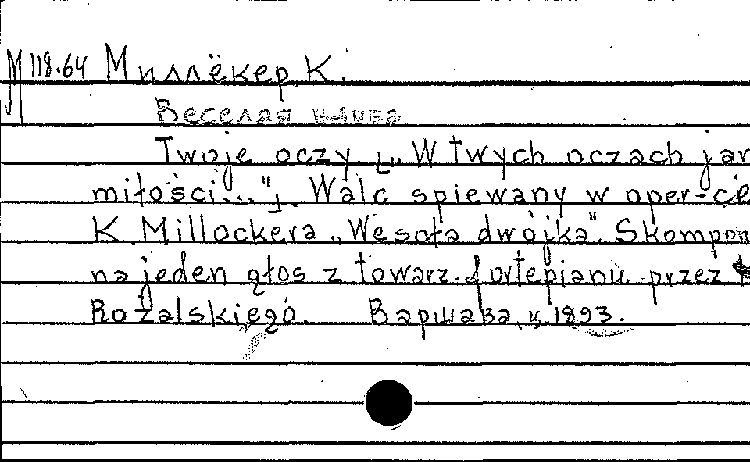 М 118.64 Миллёкер К.
Веселая
Twoje oczy [„W twych oczach jar
miłości..."]. Walc spiewany w oper-ce
K. Millockera „Wesoła dwojka". Skompon
na jeden głos z towarz. fortepianu przez
Rożalskiego. Варшава, ц. 1893.